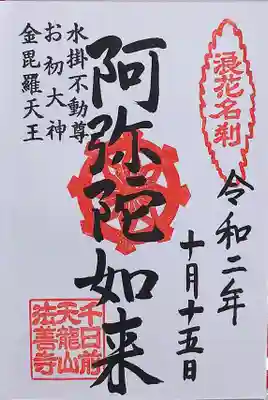 浪花名刹
令和二年
十月十五日
阿弥陀如来
水掛不動尊
お初大神
金毘羅天王
千日前
天龍山
法善寺